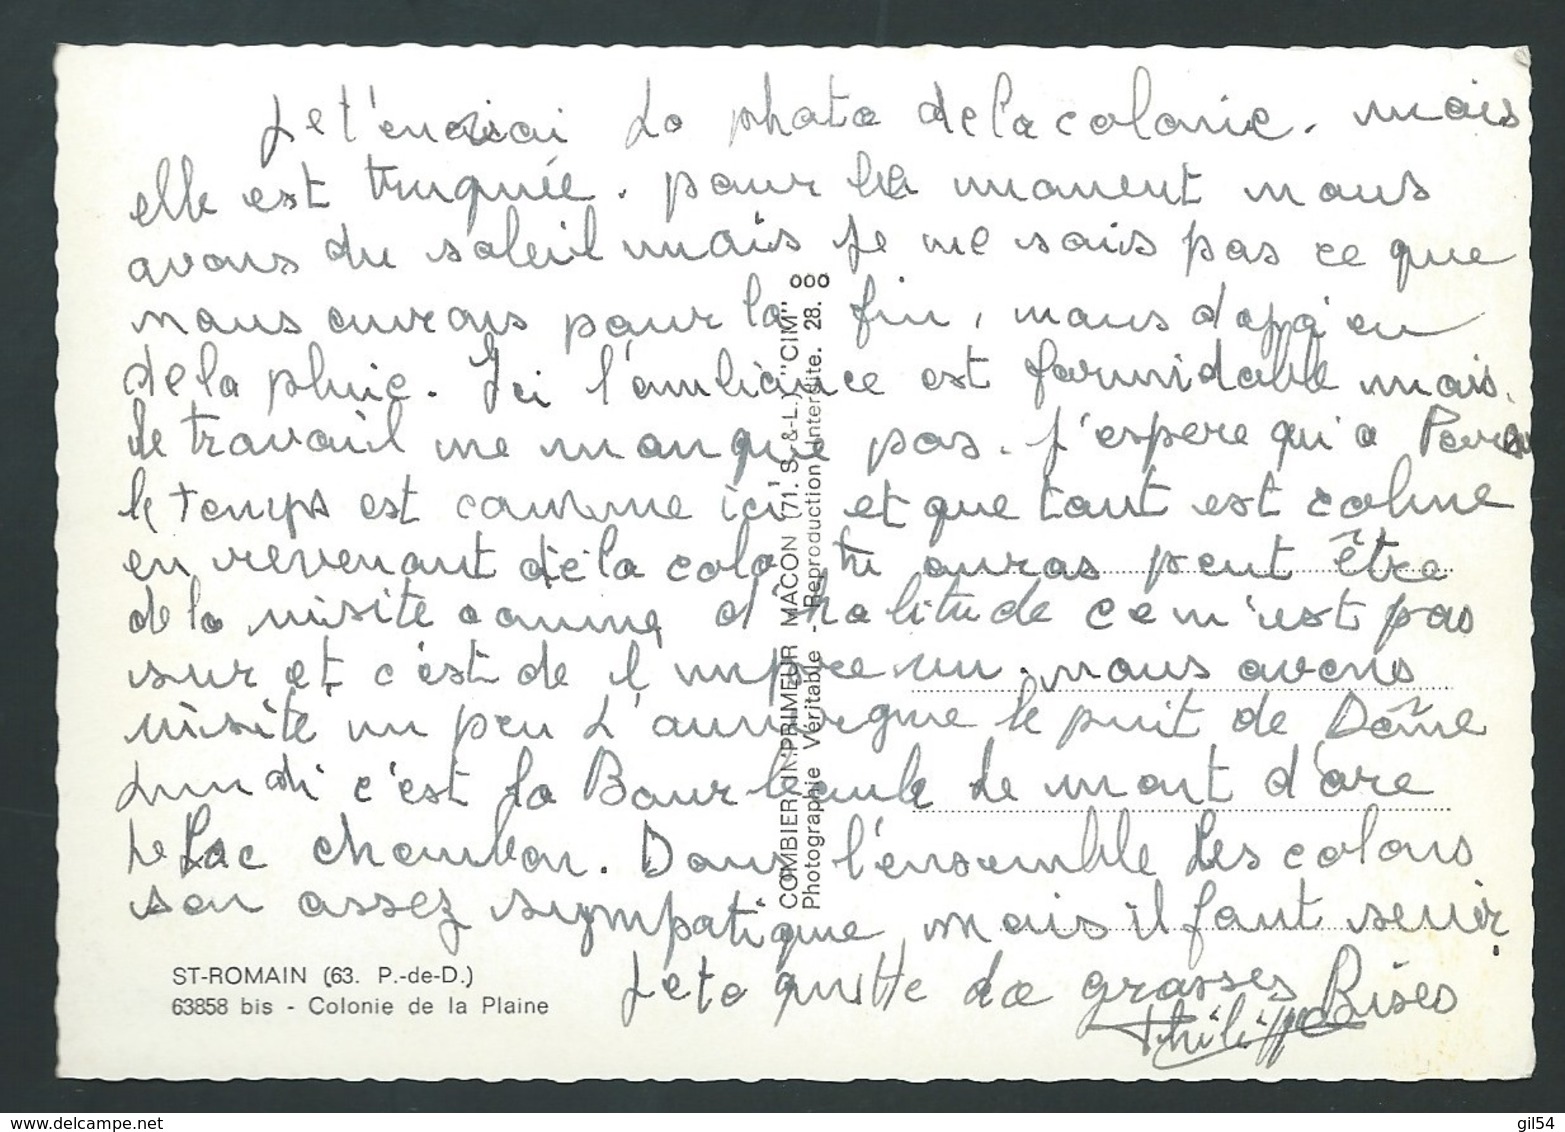 Je t'envoiai La photo de la colonie. mais
elle est truquée. pour le moment nous
avons du soleil mais je ne sais pas ce que
nous aurons pour la fin, nous
de la pluie. Ici l'ambiance est formidable mais.
le travail me manque pas. J'espere qu'a
le temps est comme ici et que tout est calme
en revenant de la colo tu auras peut être
de la visite comme d'habitude ce n'est pas
sur et c'est de l'imprevu. nous avons
visité un peu L'auvergne le puit de Dôme
Lundi c'est la Bourboule Le mont d'ore
Le Lac chambon. Dans l'ensemble Les colons
son assez sympatique, mais il faut sevir
Je te quitte de grosses Bises
Philippe
COMBIER IMPRIMEUR MACON (71. S.-&-L.) "CIM"
Photographie Véritable - Reproduction Interdite. 28.
ST-ROMAIN (63. P.-de-D.)
63858 bis - Colonie de la Plaine
delcampe.net
gil54